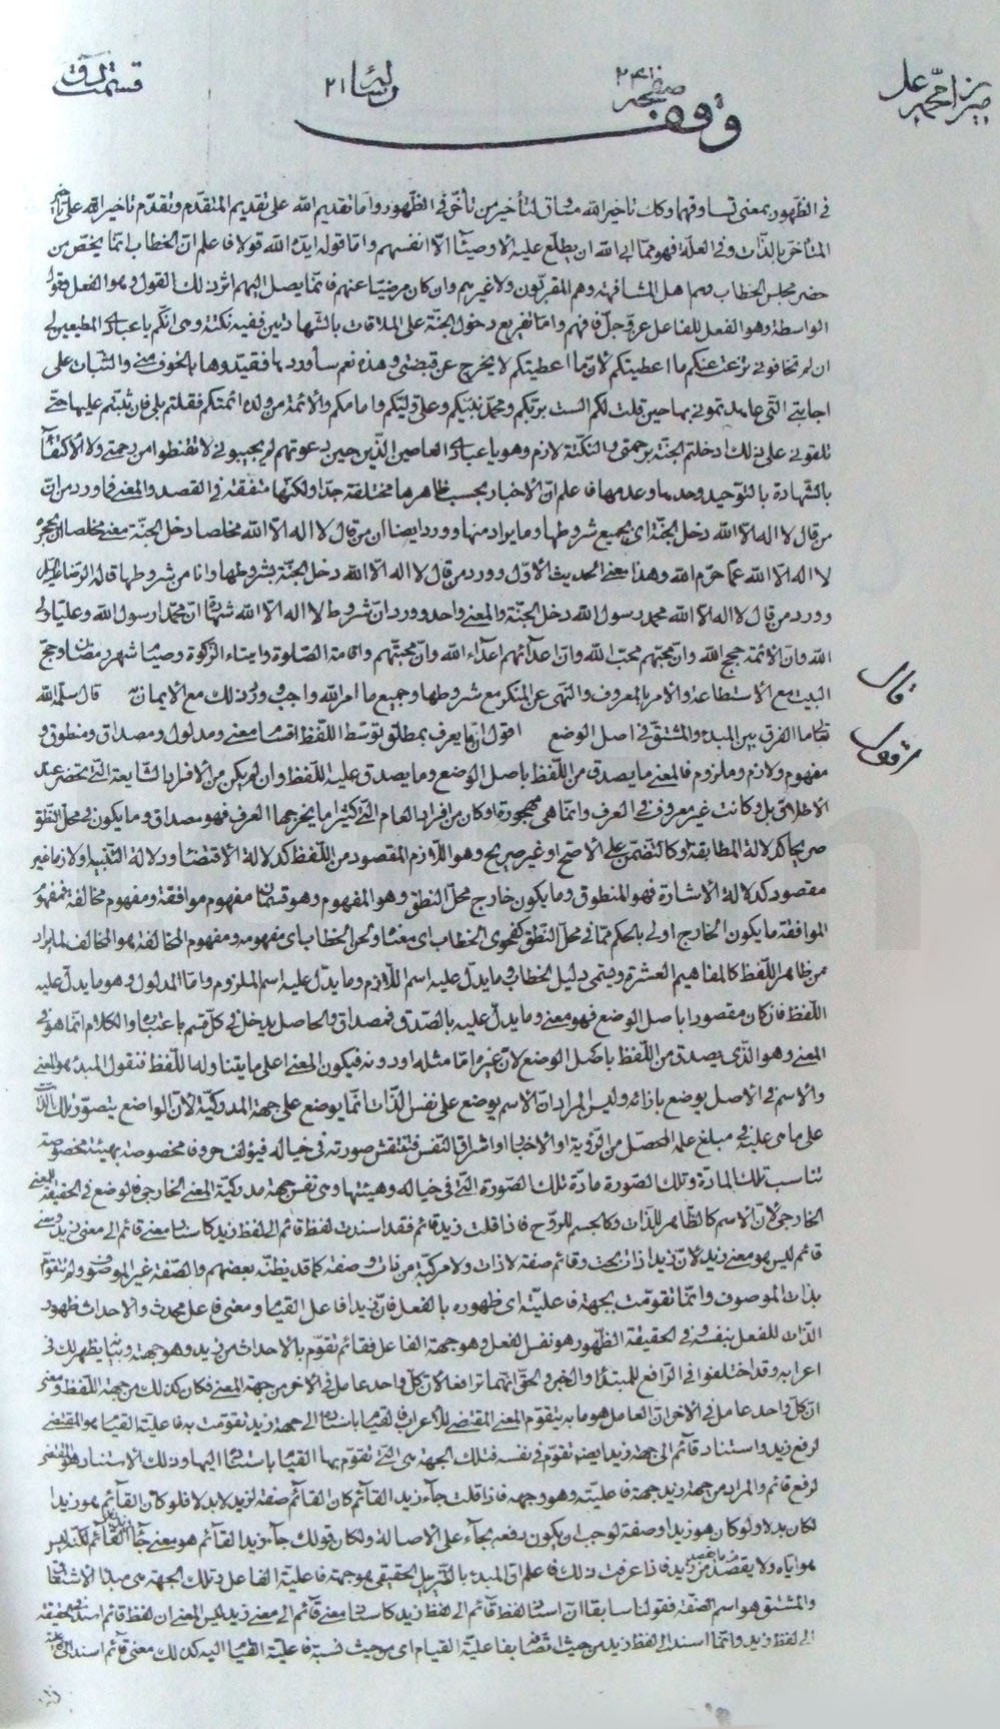 ميرزا محمد علي
صفحه ٢٤١
رساله ٢١
قسمت
وقف
في الظهور بمعنى تساوقهما وكك تأخير الله مساوق لتأخير من تأخر في الظهور واما تقديم الله على تقديم المتقدم وتقدم تأخير الله على تأخير
المتأخر بالذات وفي العلة فهو مما ابى الله ان يطلع عليه الاوصياء الا انفسهم واما قوله ايده الله قولا فاعلم ان الخطاب انما يختص من
حضر مجلس الخطاب وهم اهل المشافهة وهم المقربون ولا غيرهم وان كان مرضيا عنهم فانما يصل اليهم اثر ذلك القول وهو الفعل وقول
الواسطة وهو الفعل للفاعل عز وجل فافهم واما تفريع دخول الجنة على الملاقات بالشهادتين ففيه نكتة وهي انكم يا عبادي المطيعين لي
ان لم تخافوني نزعت عنكم ما اعطيتكم لان ما اعطيتكم لا يخرج عن قبضتي وهذه نعم سأورد بها فقيدوها بالخوف مني والثبات على
اجابتي التي عاهدتموني بها حين قلت لكم الست بربكم ومحمد نبيكم وعلي وليكم وامامكم والائمة من ولده ائمتكم فقلتم بلى فان ثبتم عليها حتى
تلقوني على ذلك ادخلتم الجنة برحمتي والنكتة لازم وهو يا عبادي العاصين الذين حين دعوتهم لم يجيبوني لا تقنطوا من رحمتي ولا الاكتفاء
بالشهادة بالتوحيد وحدها وعدمها فاعلم ان الاخبار بحسب ظاهرها مختلفة جدا ولكنها متفقة في القصد والمعنى فما ورد من ان
من قال لا اله الا الله دخل الجنة اي بجميع شروطها وما يراد منها وورد ايضا ان من قال لا اله الا الله مخلصا دخل الجنة معنى مخلصا ان يحجزه
لا اله الا الله عما حرم الله وهذا معنى الحديث الاول وورد من قال لا اله الا الله دخل الجنة بشروطها وانا من شروطها قاله الرضا عليه السلام
وورد من قال لا اله الا الله محمد رسول الله دخل الجنة والمعنى واحد وورد ان شروط لا اله الا الله شهادة ان محمدا رسول الله وعليا ولي
الله وان الائمة حجج الله وان محبهم محب الله وان اعدائهم اعداء الله وان محبتهم واقامة الصلوة وايتاء الزكوة وصيام شهر رمضان وحج
البيت مع الاستطاعة والامر بالمعروف والنهي عن المنكر مع شروطها وجميع ما امر الله واجب ورد ذلك مع الايمان به قال سلمه الله
قال
تعالى ما الفرق بين المبدء والمشتق في اصل الوضع اقول انما يعرف بمطلق توسط اللفظ اقسام معنى ومدلول ومصداق ومنطوق و
اقول
مفهوم ولازم وملزوم فالمعنى ما يصدق من اللفظ باصل الوضع وما يصدق عليه اللفظ وان لم يكن من الافراد الشايعة التي تحضر عند
الاطلاق بل وكانت غير معروف في العرف وانما هي مهجورة او كان من افراد العام التي كثيرا ما يخرجها العرف فهو مصداق وما يكون في محل النطق
صريحا كدلالة المطابقة او كالتضمن على الاصح او غير صريح وهو اللازم المقصود من اللفظ كدلالة الاقتضاء ودلالة التنبيه او لازما غير
مقصود كدلالة الاشارة فهو المنطوق وما يكون خارج محل النطق وهو المفهوم وهو قسمان مفهوم موافقة ومفهوم مخالفة فمفهوم
الموافقة ما يكون الخارج اولى بالحكم مما في محل النطق كفحوى الخطاب اي معناه ولحن الخطاب اي مفهومه ومفهوم المخالفة هو المخالف لما يراد
من ظاهر اللفظ كالمفاهيم العشرة ويسمى دليل الخطاب وما يدل عليه اسم اللازم وما يدل عليه اسم الملزوم واما المدلول وهو ما يدل عليه
اللفظ فان كان مقصورا باصل الوضع فهو معنى وما يدل عليه بالصدق فمصداق والحاصل يدخل في كل قسم باعتباره والكلام انما هو في
المعنى وهو الذي يصدق من اللفظ باصل الوضع لان غيره اما مثله او دونه فيكون المعنى اعلى ما يتناوله اللفظ فنقول المبدء هو المعنى
والاسم في الاصل يوضع بازائه وليس المراد ان الاسم يوضع على نفس الذات انما يوضع على جهة المدركية لان الواضع يتصور تلك الذات
على ما هي عليه في مبلغ علمه المحصل من الرؤية او الاخبار او اشراق النفس فتنتقش صورته في خياله فيؤلف حروفا مخصوصة بهيئة مخصوصة
تناسب تلك المادة وتلك الصورة مادة تلك الصورة التي في خياله وهيئتها وهي نفس جهة مدركية المعنى الخارجي فالوضع في الحقيقة للمعنى
الخارجي لان الاسم كالظاهر للذات وكالجسم للروح فاذا قلت زيد قائم فقد اسندت لفظ قائم الى لفظ زيد كاسناد معنى قائم الى معنى زيد ومعنى
قائم ليس هو معنى زيد لان زيدا ذات بحت وقائم صفة لا ذات ولا مركبة من ذات وصفة كما قد يظنه بعضهم والصفة غير الموصوف ولم تتقوم
بذات الموصوف وانما تقومت بجهة فاعليته اي ظهوره بالفعل فان زيدا فاعل القيام ومعنى فاعل محدث والاحداث ظهور
الذات للفعل بنفسه وفي الحقيقة الظهور هو نفس الفعل وهو جهة الفاعل فقائم تقوم بالاحداث من زيد وهو جهته وبيانه يظهر لك في
اعرابه وقد اختلفوا في الرافع للمبتدأ والخبر والحق انهما ترافعا لان كل واحد عامل في الاخر من جهة المعنى فكان كذلك من جهة اللفظ ومعنى
ان كل واحد عامل في الاخر ان العامل هو ما به يتقوم المعنى المقتضي للاعراب فالقيام باستناده الى جهة زيد تقومت به فاعلية القيام هو المقتضي
لرفع زيد واستناد قائم الى جهة زيد ايضا تقوم في نفسه فتلك الجهة هي التي تقوم بها القيام باستناده اليها وذلك الاستناد هو المقتضي
لرفع قائم والمراد من جهة زيد جهة فاعليته وهو وجهه فاذا قلت جاء زيد القائم كان القائم صفة لزيد لا بدلا فلو كان القائم هو زيدا
لكان بدلا ولو كان هو زيدا وصفة لوجب ان يكون رفعه بجاء على الاصالة ولكان قولك جاء زيد القائم هو معنى جاء زيد جاء القائم لكنه ليس
هو اياه ولا يقصد من زيد فاذا عرفت ذلك فاعلم ان المبدء بالتنزيل الحقيقي هو جهة فاعلية الفاعل وتلك الجهة هي مبدء الاشتقاق
والمشتق هو اسم الصفة فقولنا سابقا ان اسناد لفظ قائم الى لفظ زيد كاسناد معنى قائم الى معنى زيد ليس المعنى ان لفظ قائم اسند في الحقيقة
الى لفظ زيد وانما اسند الى لفظ زيد من حيث اتصافه بفاعلية القيام اي من حيث نسبة فاعلية القيام اليه كذلك معنى قائم اسند الى